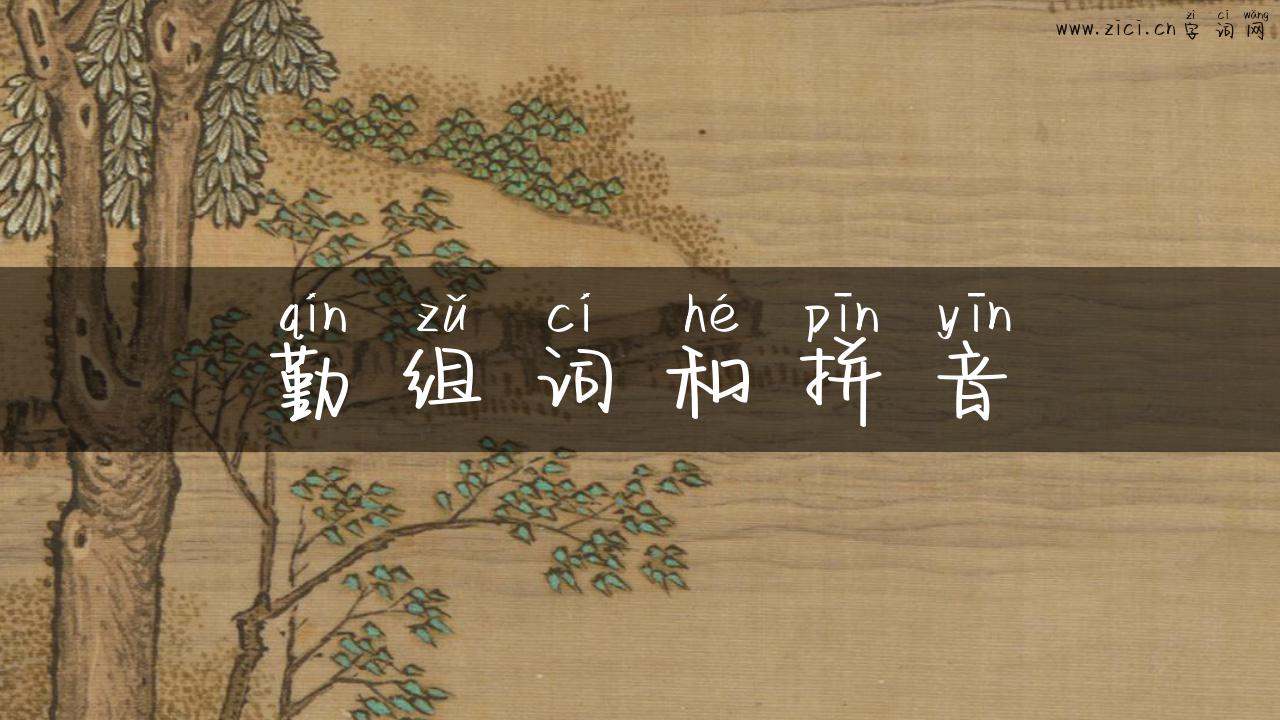 zì cí wǎng
www.zici.cn 字词网
qín zǔ cí hé pīn yīn
勤组词和拼音